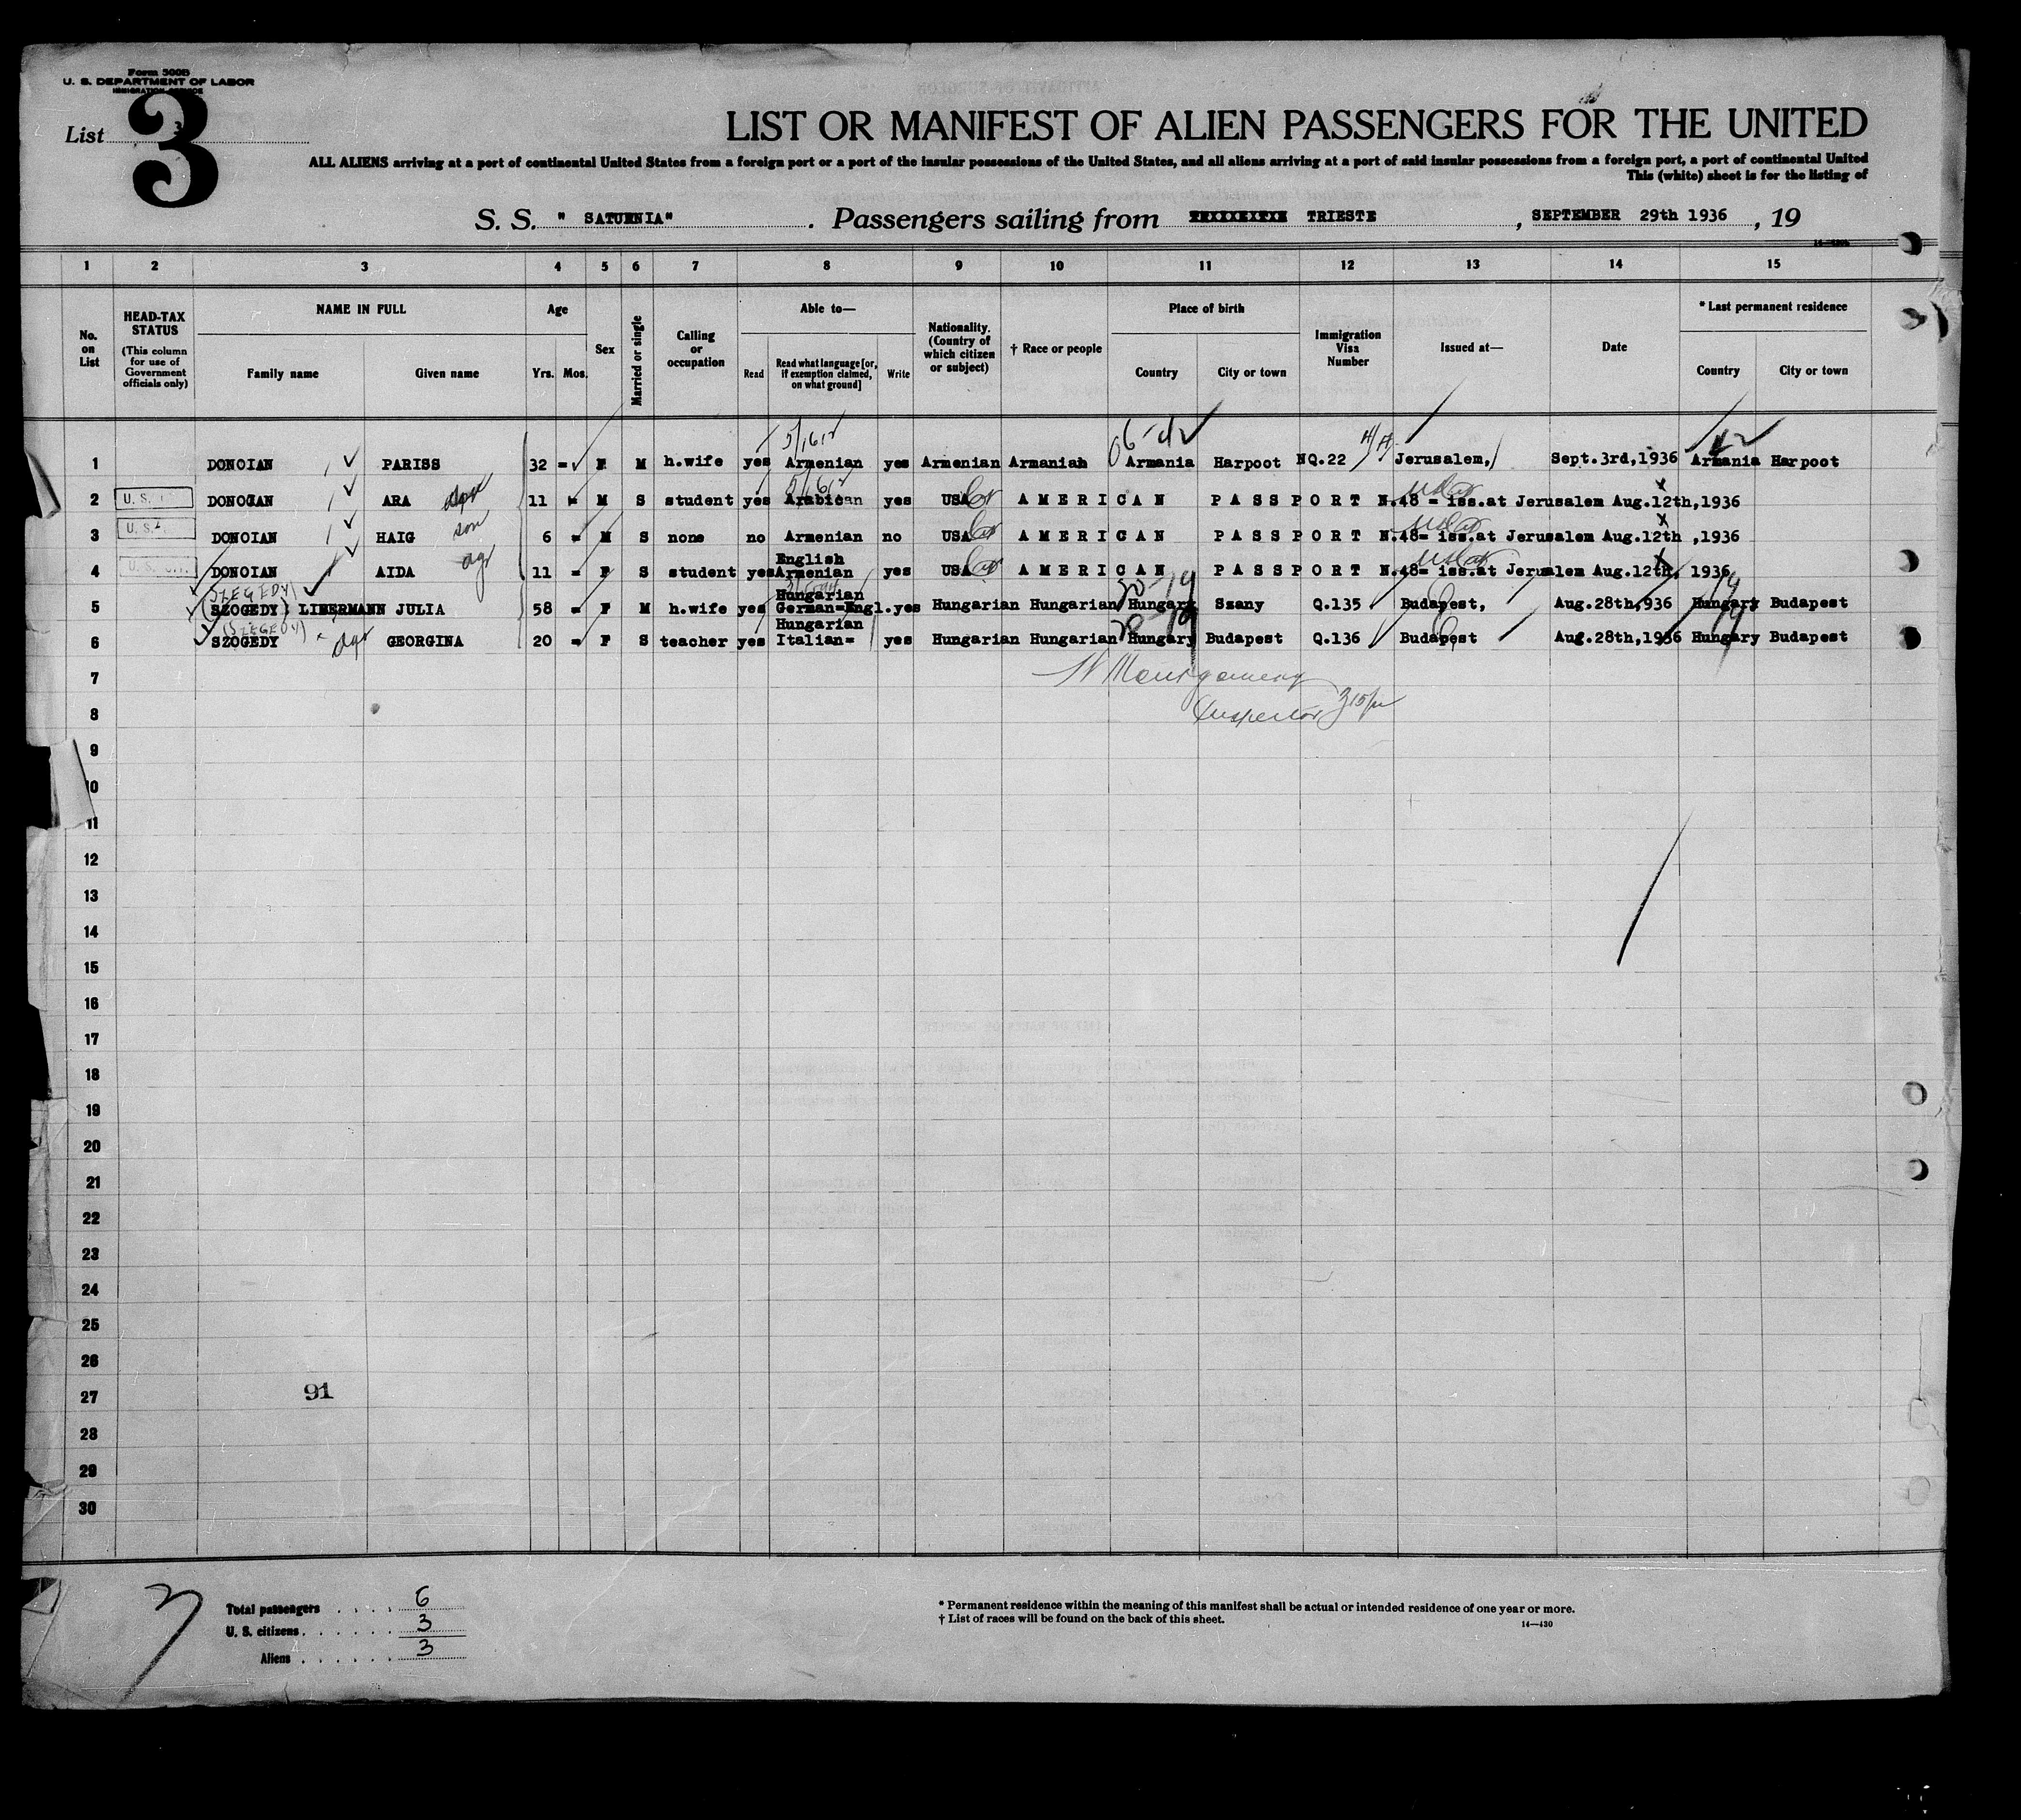 Form 500B
U. S. DEPARTMENT OF LABOR
IMMIGRATION SERVICE
3
List 3
LIST OR MANIFEST OF ALIEN PASSENGERS FOR THE UNITED
ALL ALIENS arriving at a port of continental United States from a foreign port or a port of the insular possessions of the United States, and all aliens arriving at a port of said insular possessions from a foreign port, a port of continental United
This (white) sheet is for the listing of
S. S. " SATURNIA" . Passengers sailing from TRIESTE , SEPTEMBER 29th 1936 , 19
1 2 3 4 5 6 7 8 9 10 11 12 13 14 15
No. on List
HEAD-TAX STATUS (This column for use of Government officials only)
NAME IN FULL
Family name Given name
Age
Yrs. Mos.
Sex
Married or single
Calling or occupation
Able to—
Read Read what language [or, if exemption claimed, on what ground] Write
Nationality. (Country of which citizen or subject)
† Race or people
Place of birth
Country City or town
Immigration Visa Number
Issued at—
Date
* Last permanent residence
Country City or town
1 DONOIAN PARISS 32 = F M h.wife yes Armenian yes Armenian Armanian Armania Harpoot NQ.22 Jerusalem, Sept.3rd,1936 Armania Harpoot
2 U. S. DONOIAN ARA 11 = M S student yes Arabic yes USA AMERICAN PASSPORT N.48 = iss.at Jerusalem Aug.12th,1936
3 U. S. DONOIAN HAIG son 6 = M S none no Armenian no USA AMERICAN PASSPORT N.48= iss.at Jerusalem Aug.12th ,1936
English
4 U. S. DONOIAN AIDA 11 = F S student yes Armenian yes USA AMERICAN PASSPORT N.48= iss.at Jerusalem Aug.12th, 1936
(SZEGEDY) Hungarian
5 (SZOGEDY) LIBERMANN JULIA 58 = F M h.wife yes German=Engl. yes Hungarian Hungarian Hungary Szany Q.135 Budapest, Aug.28th,936 Hungary Budapest
(SZEGEDY) Hungarian
6 SZOGEDY GEORGINA 20 = F S teacher yes Italian= yes Hungarian Hungarian Hungary Budapest Q.136 Budapest Aug.28th,1936 Hungary Budapest
7 Montgomery
8 Inspector
9
10
11
12
13
14
15
16
17
18
19
20
21
22
23
24
25
26
27 91
28
29
30
3
Total passengers . . . . 6
U. S. citizens . . . . . . 3
Aliens . . . . . . 3
* Permanent residence within the meaning of this manifest shall be actual or intended residence of one year or more.
† List of races will be found on the back of this sheet.
14—430